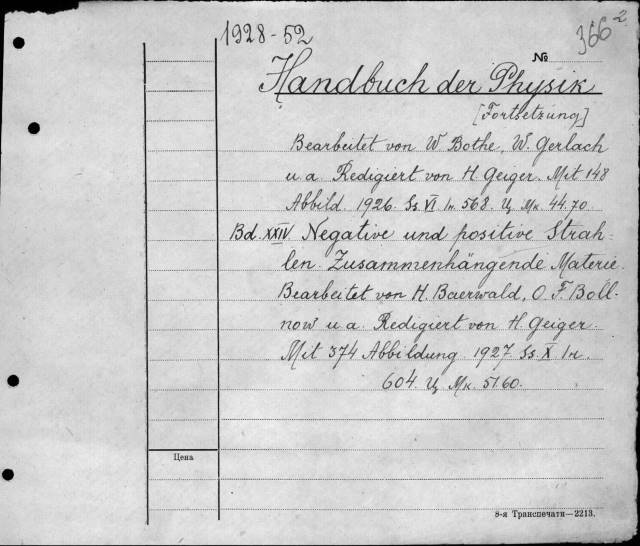 1928-52
366²
№
Handbuch der Physik
[Fortsetzung]
Bearbeitet von W Bothe, W. Gerlach
u a. Redigiert von H. Geiger. Mit 148
Abbild. 1926. Ss VI 568. Ц Мк. 44.70.
Bd. XXIV Negative und positive Strah-
len. Zusammenhängende Materie.
Bearbeitet von H. Baerwald, O. F. Boll-
now u a. Redigiert von H. Geiger.
Mit 374 Abbildung. 1927. Ss. X
604. Ц Мк. 51.60.
Цена
8-я Транспечати—2213.